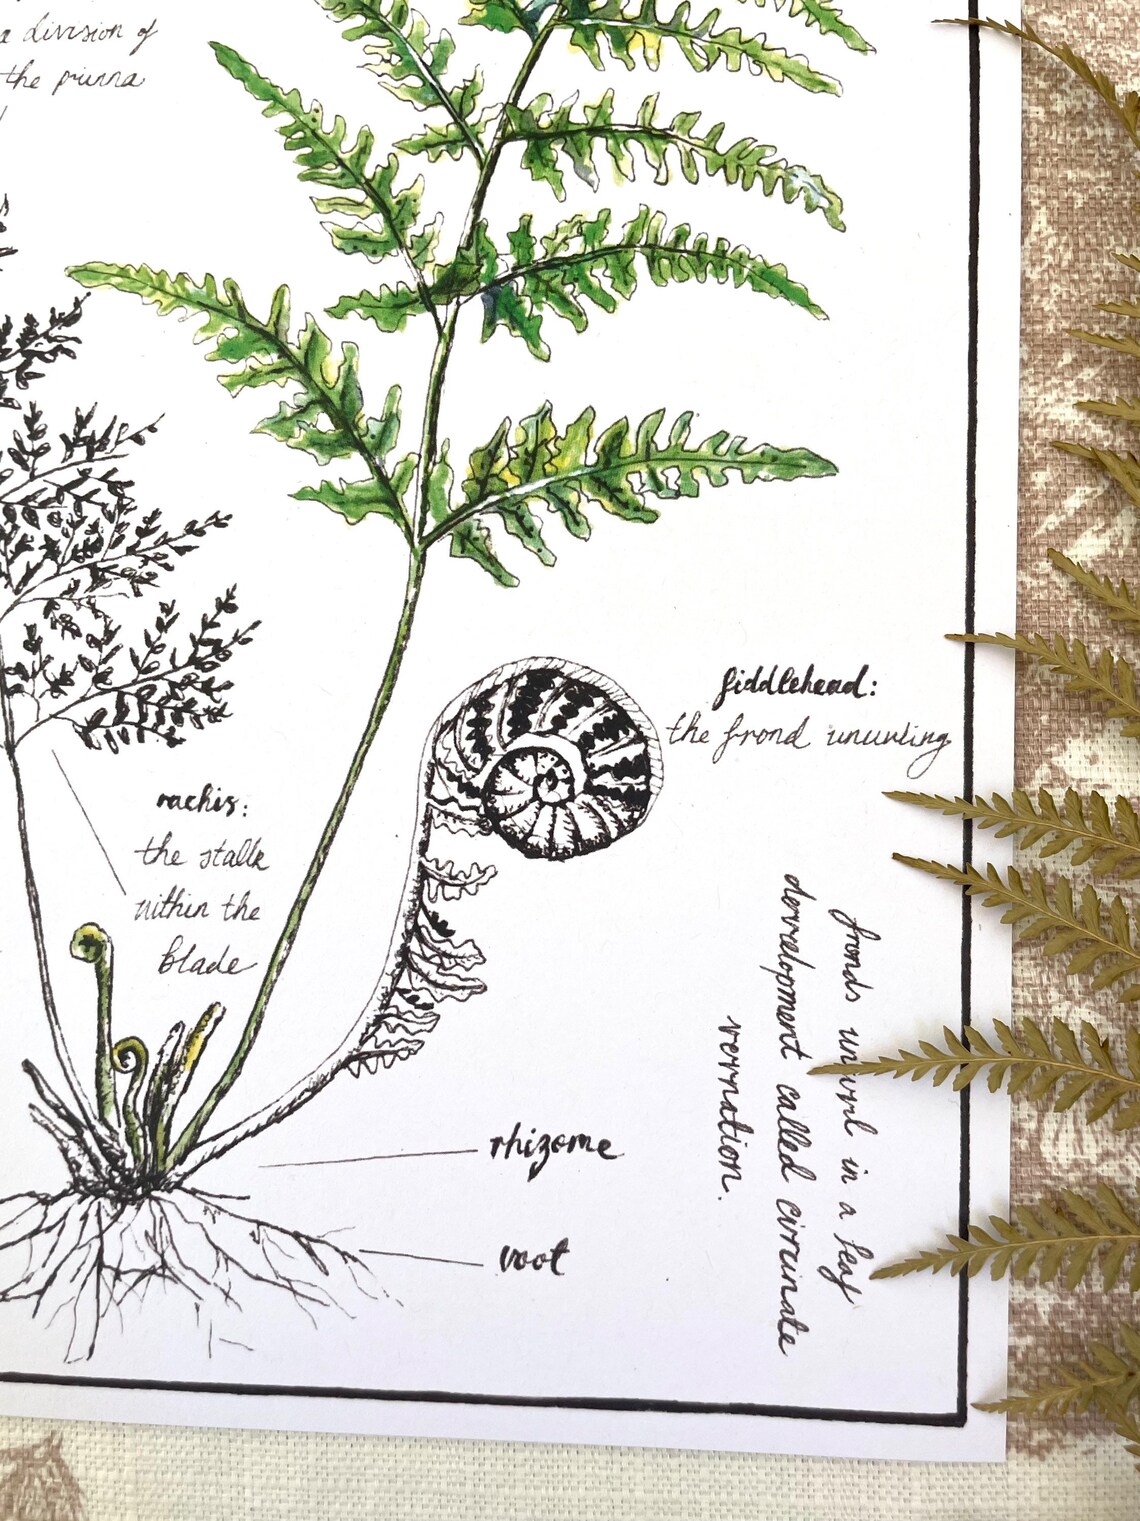 a division of
the pinna
fiddlehead:
the frond ununling
rachis:
the stalk
within the
blade
fronds unfurl in a leaf
dervelopment called cirrinate
vernation.
rhizome
root